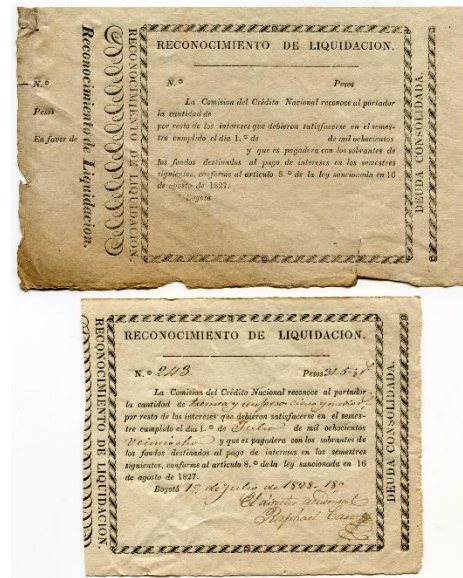 Reconocimiento de Liquidacion.
N.º
Pesos
En favor de
RECONOCIMIENTO DE LIQUIDACION.
RECONOCIMIENTO DE LIQUIDACION.
N.º Pesos
La Comision del Crédito Nacional reconoce al portador
la cantidad de
por resto de los intereses que debieron satisfacerse en el semes-
tre cumplido el dia 1.º de de mil ochocientos
y que es pagadera con los sobrantes de
los fondos destinados al pago de intereses en los semestres
siguientes, conforme al articulo 8.º de la ley sancionada en 16
de agosto de 1827.
Bogotá
DEUDA CONSOLIDADA.
RECONOCIMIENTO DE LIQUIDACION.
RECONOCIMIENTO DE LIQUIDACION.
N.º 243. Pesos 31.5
La Comision del Crédito Nacional reconoce al portador
la cantidad de treinta y un pesos cinco
por resto de los intereses que debieron satisfacerse en el semes-
tre cumplido el dia 1.º de Julio de mil ochocientos
veintiocho y que es pagadera con los sobrantes de
los fondos destinados al pago de intereses en los semestres
siguientes, conforme al articulo 8.º de la ley sancionada en 16
de agosto de 1827.
Bogotá 1º de Julio de 1828-18º
El director
Raphael
DEUDA CONSOLIDADA.